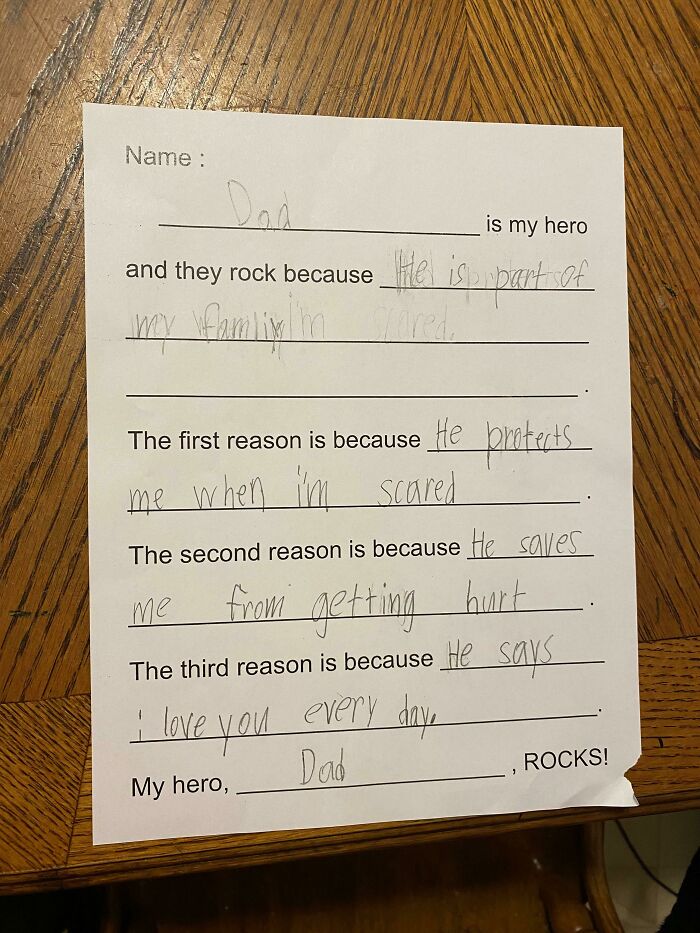 Name :
Dad is my hero
and they rock because He is part of
my family i'm scared.
.
The first reason is because He protects
me when i'm scared .
The second reason is because He saves
me from getting hurt .
The third reason is because He says
i love you every day. .
My hero, Dad , ROCKS!